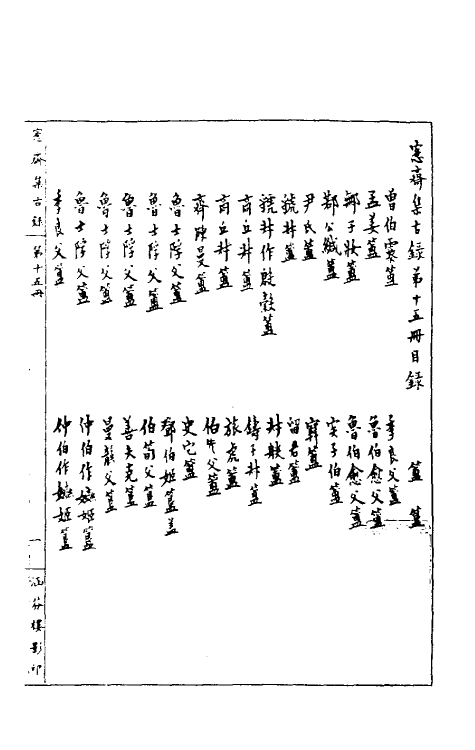 愙齋集古錄第十五冊目錄
簠 簋
曾伯霥簠
孟姜簠
鄦子妝簠
鄀公簠
尹氏簠
虢叔簠
虢叔作簠
商丘叔簠
商丘叔簠
齊陳曼簠
魯士父簠
魯士父簠
魯士父簠
魯士父簠
季良父簠
季良父簠
魯伯愈父簠
魯伯愈父簠
子伯簠
簠
留君簠
叔簠
鑄子叔簠
旅虎簠
伯父簠
史簠
鄧伯姬簋蓋
伯筍父簋
善夫克簋
曼龏父簋
仲伯作姬簋
仲伯作姬簋
愙齋集古錄 第十五冊
一
涵芬樓影印